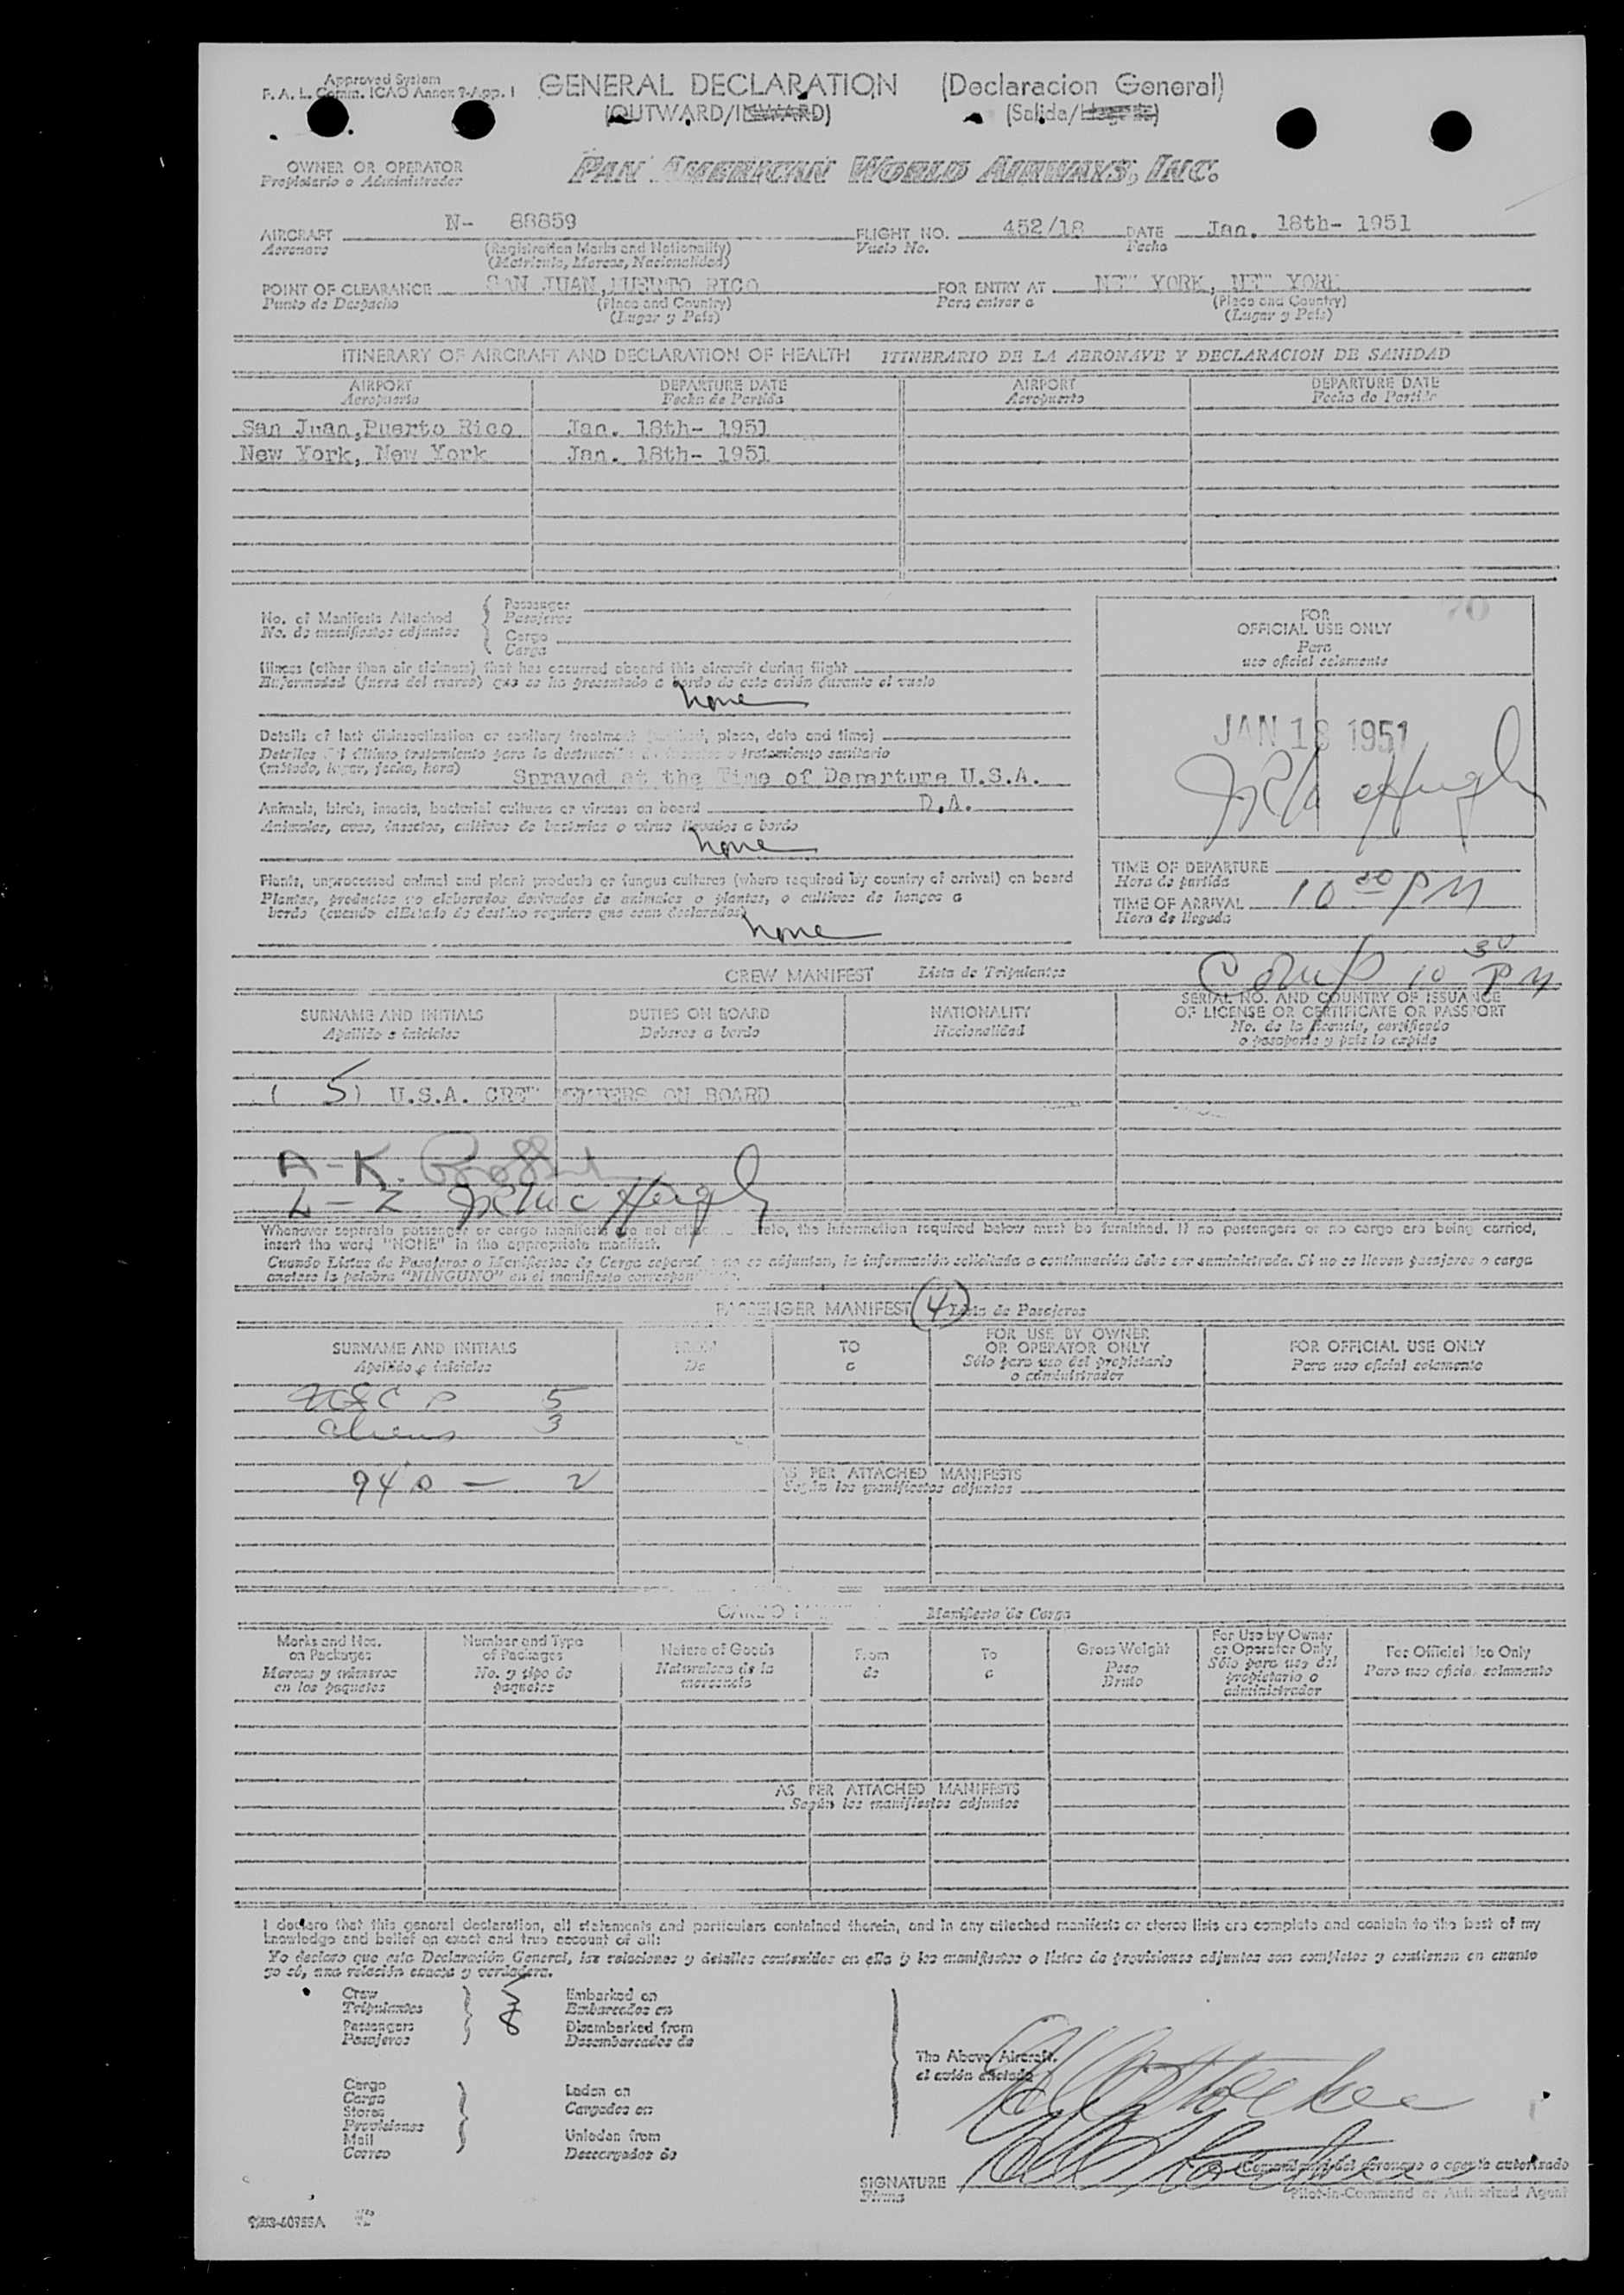 Approved System
F. A. L. Comm. ICAO Annex 9-App. 1
GENERAL DECLARATION (Declaracion General)
(OUTWARD/INWARD) (Salida/Llegada)
OWNER OR OPERATOR
Propietario o Administrador
PAN AMERICAN WORLD AIRWAYS, INC.
AIRCRAFT N- 88859 FLIGHT NO. 452/18 DATE Jan. 18th- 1951
Aeronave (Registration Marks and Nationality) Vuelo No. Fecha
(Matricula, Marcas, Nacionalidad)
POINT OF CLEARANCE SAN JUAN, PUERTO RICO FOR ENTRY AT NEW YORK, NEW YORK
Punto de Despacho (Place and Country) Para entrar a (Place and Country)
(Lugar y País) (Lugar y País)
ITINERARY OF AIRCRAFT AND DECLARATION OF HEALTH ITINERARIO DE LA AERONAVE Y DECLARACION DE SANIDAD
AIRPORT DEPARTURE DATE AIRPORT DEPARTURE DATE
Aeropuerto Fecha de Partida Aeropuerto Fecha de Partida
San Juan,Puerto Rico Jan. 18th- 1951
New York, New York Jan. 18th- 1951
No. of Manifests Attached
No. de manifiestos adjuntos
Passenger
Pasajeros
Cargo
Carga
Illness (other than air sickness) that has occurred aboard this aircraft during flight
Enfermedad (fuera del mareo) que se ha presentado a bordo de este avión durante el vuelo
None
Details of last disinsectization or sanitary treatment (method, place, date and time)
Detalles del último tratamiento para la destrucción de insectos o tratamiento sanitario
(método, lugar, fecha, hora) Sprayed at the Time of Departure U.S.A.
Animals, birds, insects, bacterial cultures or viruses on board D.A.
Animales, aves, insectos, cultivos de bacterias o virus llevados a bordo
None
Plants, unprocessed animal and plant products or fungus cultures (where required by country of arrival) on board
Plantas, productos no elaborados derivados de animales o plantas, o cultivos de hongos a
bordo (cuando el Estado de destino requiere que sean declarados)
None
FOR
OFFICIAL USE ONLY
Para
uso oficial solamente
JAN 18 1951
TIME OF DEPARTURE
Hora de partida
TIME OF ARRIVAL 10 00 PM
Hora de llegada
Comp 10 30 PM
CREW MANIFEST Lista de Tripulantes
SURNAME AND INITIALS DUTIES ON BOARD NATIONALITY SERIAL NO. AND COUNTRY OF ISSUANCE
OF LICENSE OR CERTIFICATE OR PASSPORT
Apellido e iniciales Deberes a bordo Nacionalidad No. de la licencia, certificado
o pasaporte y país lo expide
( 5) U.S.A. CREW MEMBERS ON BOARD
A-K.
L-Z
Whenever separate passenger or cargo manifests are not attached hereto, the information required below must be furnished. If no passengers or no cargo are being carried,
insert the word "NONE" in the appropriate manifest.
Cuando Listas de Pasajeros o Manifiestos de Carga separados no se adjuntan, la información solicitada a continuación debe ser suministrada. Si no se llevan pasajeros o carga
anótese la palabra "NINGUNO" en el manifiesto correspondiente.
PASSENGER MANIFEST (4) Lista de Pasajeros
SURNAME AND INITIALS FROM TO FOR USE BY OWNER
OR OPERATOR ONLY FOR OFFICIAL USE ONLY
Apellido e iniciales De a Sólo para uso del propietario
o administrador Para uso oficial solamente
USC s 5
Aliens 3
94's - 2
AS PER ATTACHED MANIFESTS
Según los manifiestos adjuntos
CARGO Manifiesto de Carga
Marks and Nos.
on Packages
Marcas y números
en los paquetes
Number and Type
of Packages
No. y tipo de
paquetes
Nature of Goods
Naturaleza de la
mercancía
From
de
To
a
Gross Weight
Peso
Bruto
For Use by Owner
or Operator Only
Sólo para uso del
propietario o
administrador
For Official Use Only
Para uso oficial solamente
AS PER ATTACHED MANIFESTS
Según los manifiestos adjuntos
I declare that this general declaration, all statements and particulars contained therein, and in any attached manifests or stores lists are complete and contain to the best of my
knowledge and belief an exact and true account of all:
Yo declaro que esta Declaración General, las relaciones y detalles contenidos en ella y los manifiestos o listas de provisiones adjuntos son completos y contienen en cuanto
yo sé, una relación exacta y verdadera.
Crew 5 Embarked on
Tripulantes Embarcados en
Passengers 8 Disembarked from
Pasajeros Desembarcados de
The Above Aircraft.
el avión citado
Cargo Laden on
Carga Cargados en
Stores
Provisiones
Mail Unladen from
Correo Descargados de
SIGNATURE
Firma
Comandante del aeronave o agente autorizado
Pilot-in-Command or Authorized Agent